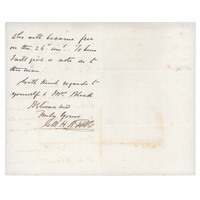 who will become free
on the 26th inst. To him
I will give a note as to
this man.
With kind regards to
yourself & Mrs Black
Believe me
truly yours